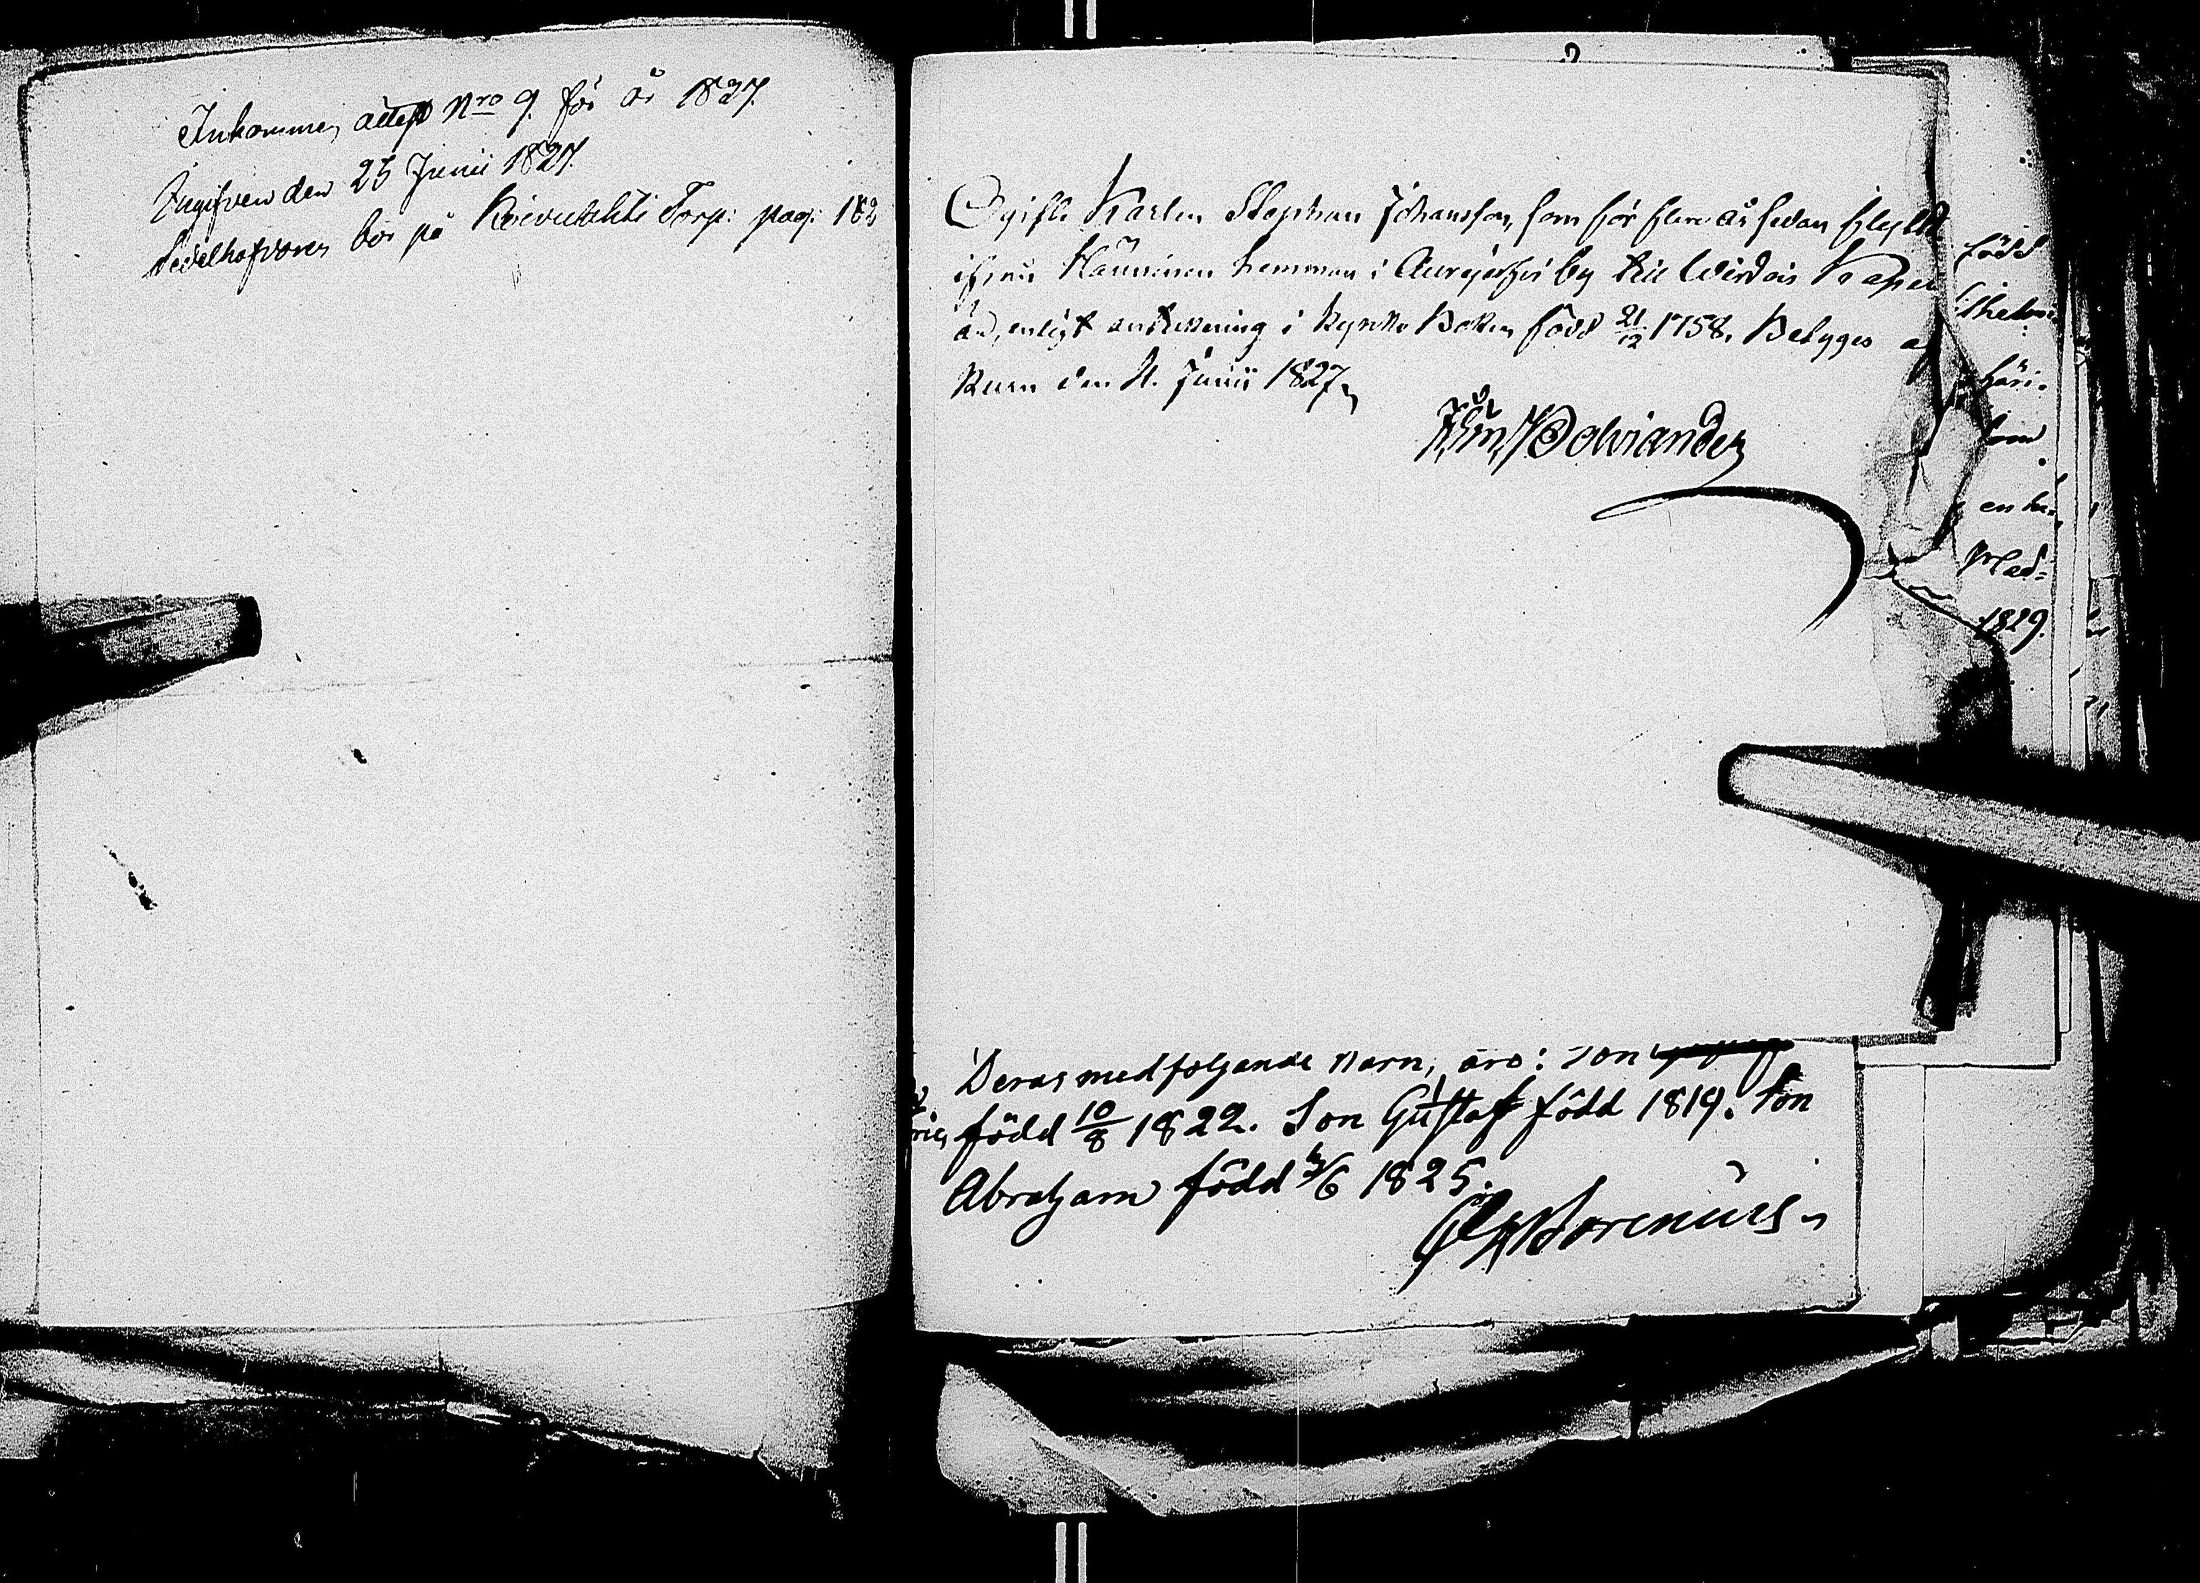 Inkommen, attest Nro 9. för år 1827.
Ingifven den 25 Junii 1827.
Sedelhafvaren bor på Koivulahti Torp: pag: 182
Ogifte Karlen Stephan Johansson, som för flere år sedan flyttat
ifrån Hänninen hemman i Aurejärfvi by till Wirdois Kapell
är, enligt anteckning i Kyrko Boken född 21/12 1758. Betygas af
Kuru den 11. Junii 1827,
född
häri-
som
Mad-
1829.
Deras medföljande Barn, äro: Son
född 10/8 1822. Son Gustaf född 1819. Son
Abraham född 3/6 1825.
Borenius